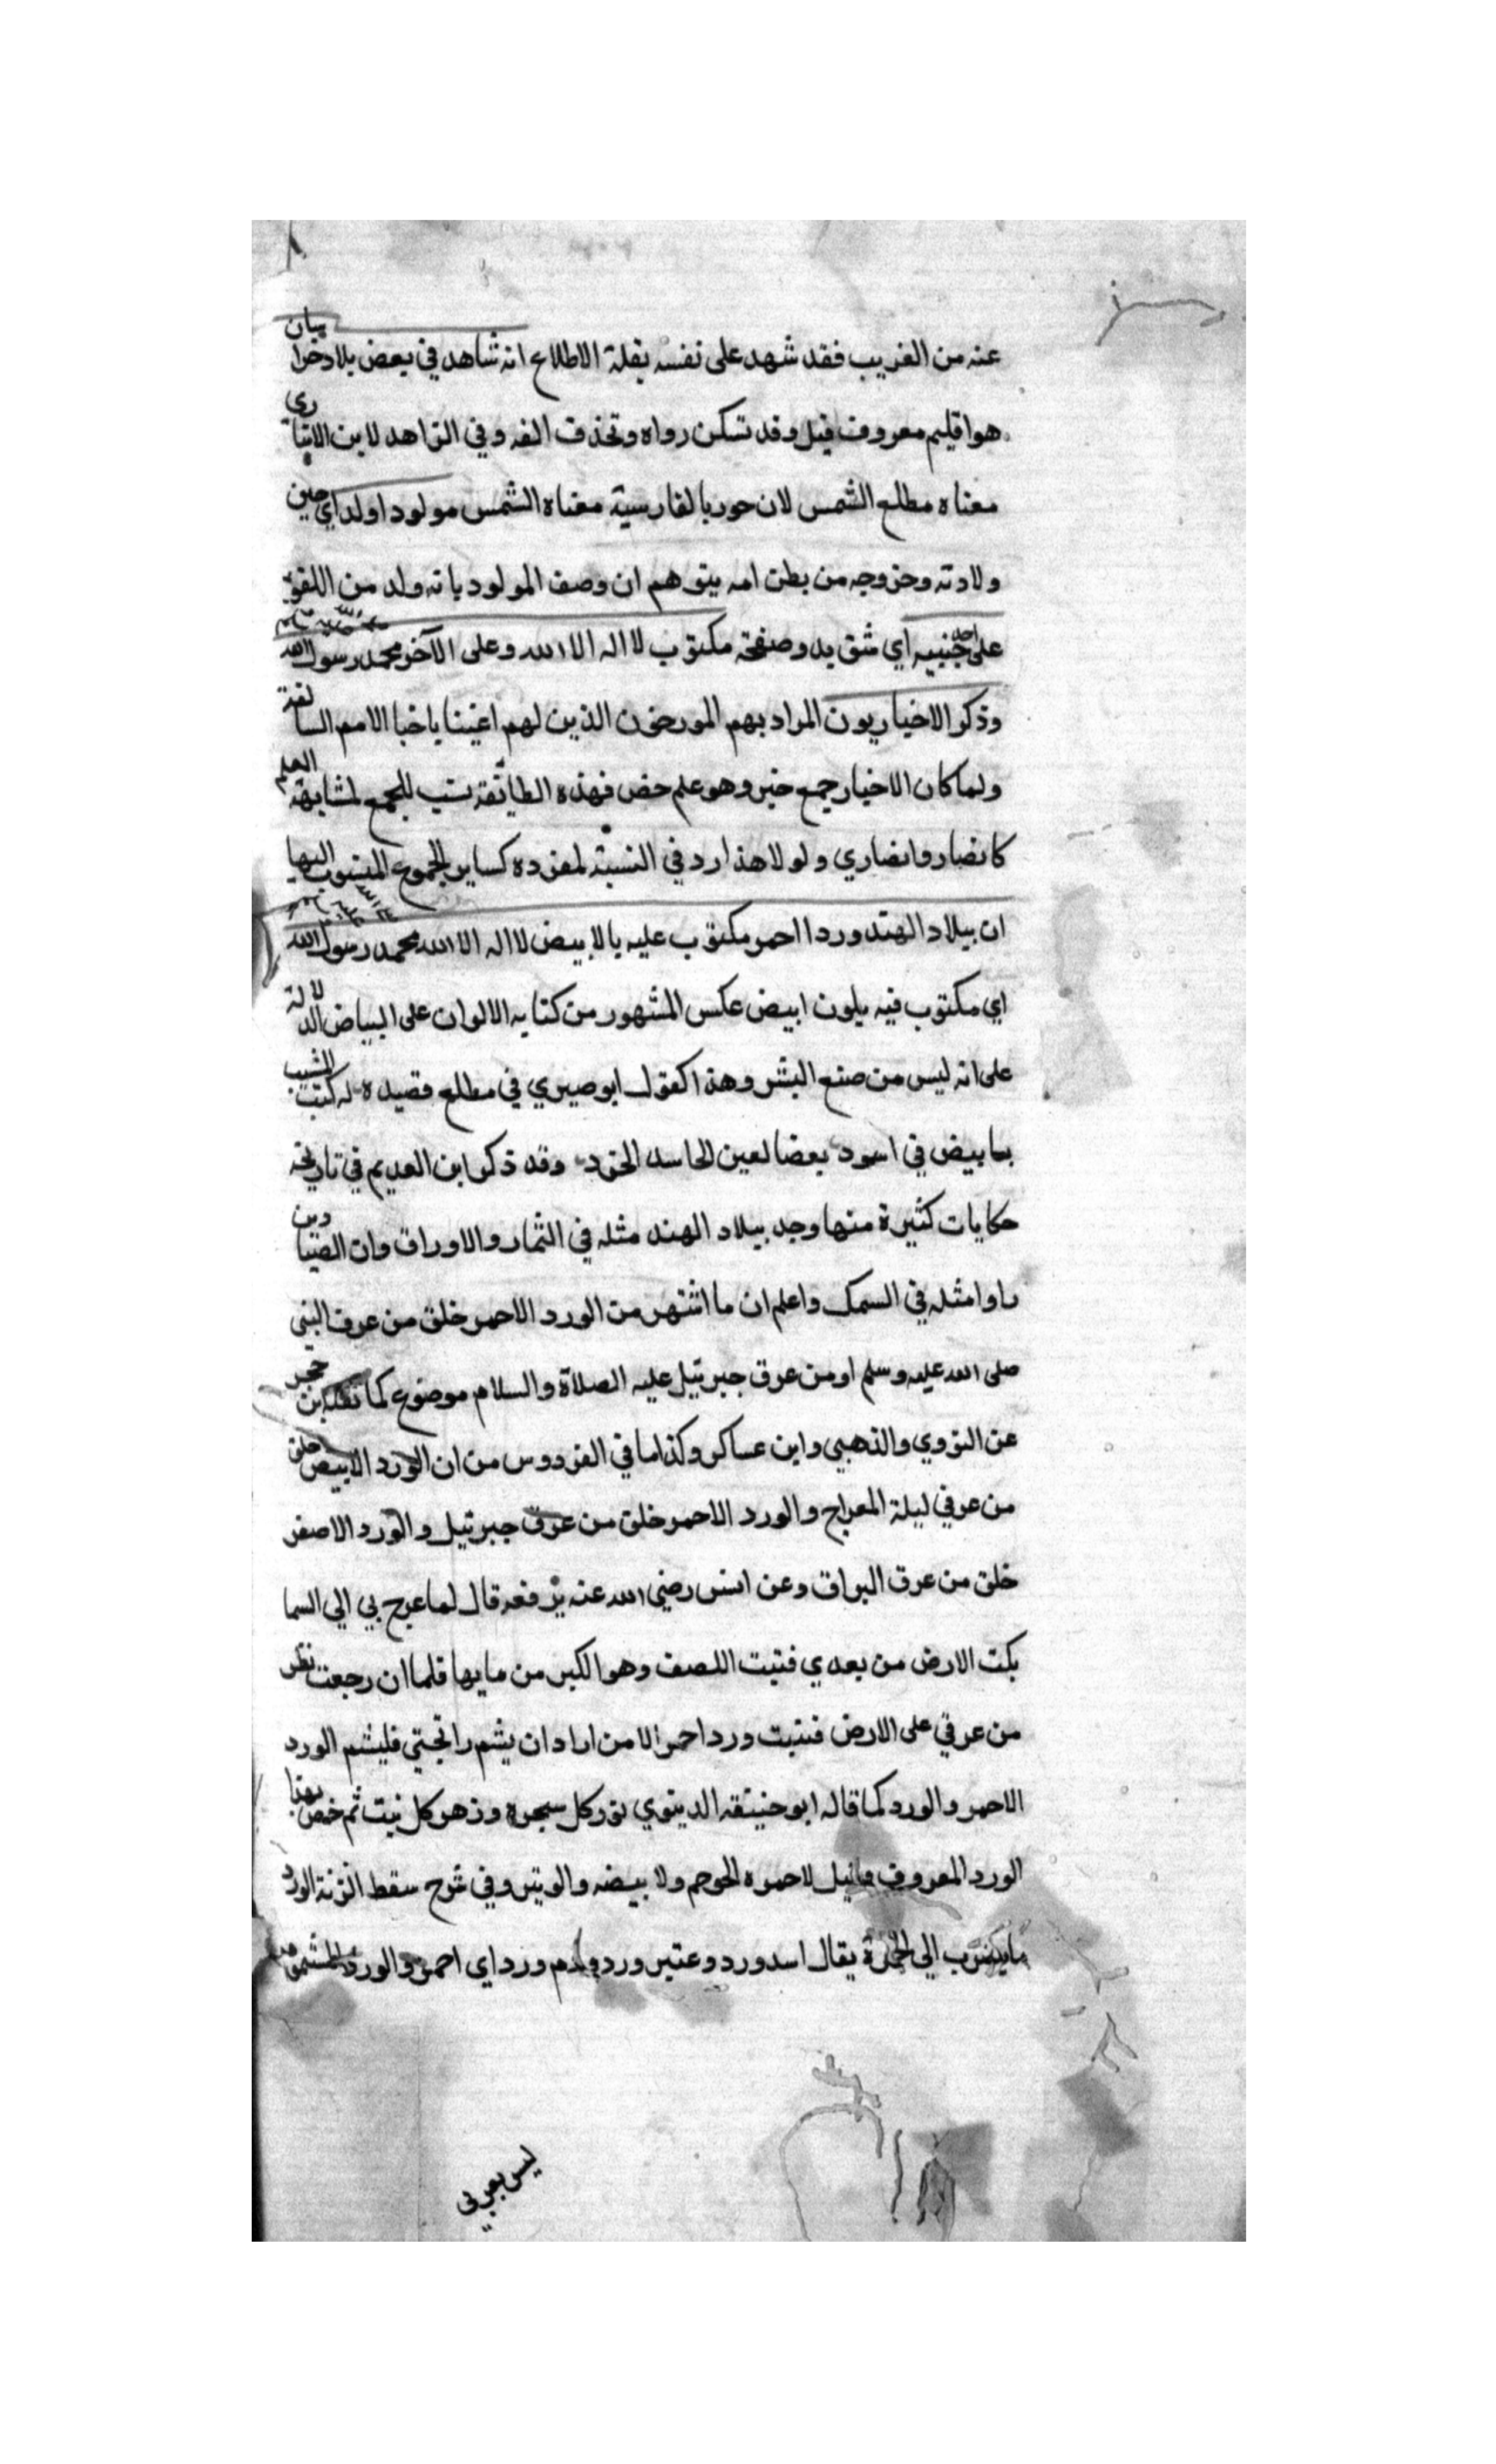 عنه من الغريب فقد شهد على نفسه بقلة الاطلاع انه شاهد في بعض بلاد خراسان
هو اقليم معروف قيل وقد تسكن رواه وتحذف الفه وفي الزاهد لابن الانباري
معناه مطلع الشمس لان حور بالفارسية معناه الشمس مولودا ولد اي حين
ولادته وخروجه من بطن امه يتوهم ان وصف المولود بانه ولد من اللغو
على احد جنبيه اي شق يد وصفحته مكتوب لا اله الا الله وعلى الآخر محمد رسول الله
وذكر الاخباريون المراد بهم المورخون الذين لهم اعتنا باخبا الامم السالفة
ولما كان الاخبار جمع خبر وهو علم خص فهذه الطائفة نسب للجمع لمشابهة العلم
كانصار وانصاري ولولا هذا رد في النسبة لمفرده كساير الجموع المنسوب اليها
ان ببلاد الهند وردا احمر مكتوب عليه بالابيض لا اله الا الله محمد رسول الله
اي مكتوب فيه بلون ابيض عكس المشهور من كتابه الالوان على البياض الدلالة
على انه ليس من صنع البشر وهذا كقول ابوصيري في مطلع قصيده له كتب المشيب
بابيض في اسود بعضا لعين الحاسد الحقود وقد ذكر ابن العديم في تاريخه
حكايات كثيرة منها وجد ببلاد الهند مثله في الثمار والاوراق وان الصيادين
راوا مثله في السمك واعلم ان ما اشتهر من الورد الاحمر خلق من عرق النبي
صلى الله عليه وسلم او من عرق جبرئيل عليه الصلاة والسلام موضوع كما نقله ابن حجر
عن النووي والذهبي وابن عساكر وكذا ما في الفردوس من ان الورد الابيض خلق
من عرقي ليلة المعراج والورد الاحمر خلق من عرق جبرئيل والورد الاصفر
خلق من عرق البراق وعن انس رضي الله عنه يرفعه قال لما عرج بي الي السما
بكت الارض من بعدي فنبت اللصف وهو الكبر من مايها فلما ان رجعت نظر
من عرقي على الارض فنبت ورد احمر الا من اراد ان يشم رائحتي فليشم الورد
الاحمر والورد كما قاله ابو حنيفة الدينوي نور كل سجره وزهر كل نبت ثم خص بهذا
الورد المعروف فقيل لاحمره الحوجم ولا بيضه والوتير وفي شرح سقط الزنة الورد
ما يضرب الي الحمرة يقال اسد ورد وعنبر ورد ودم ورد اي احمر والورد المشموم
ليس بعربي